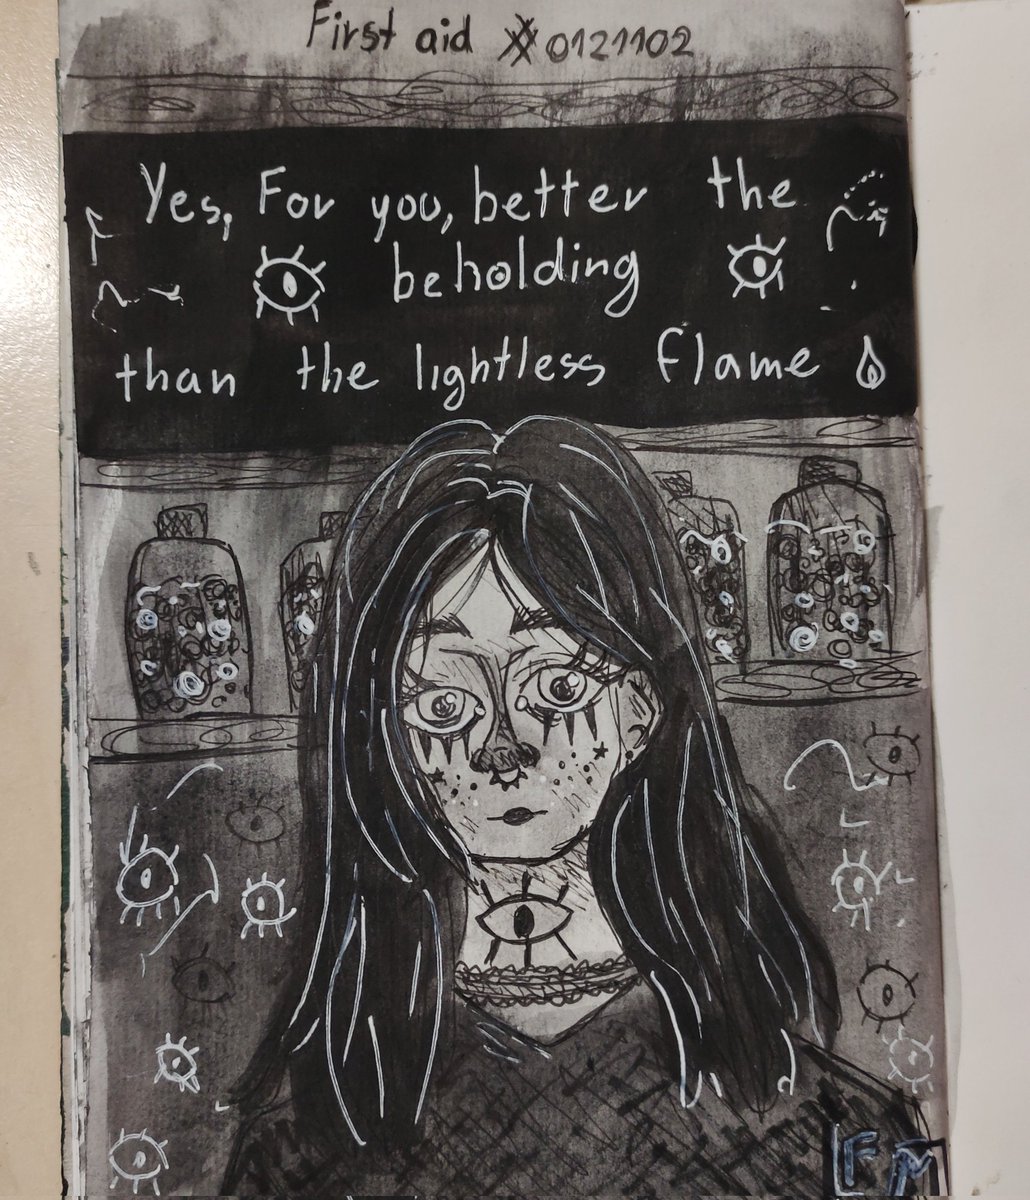 First aid #0121102
Yes, For you, better the
beholding
than the lightless flame
FM